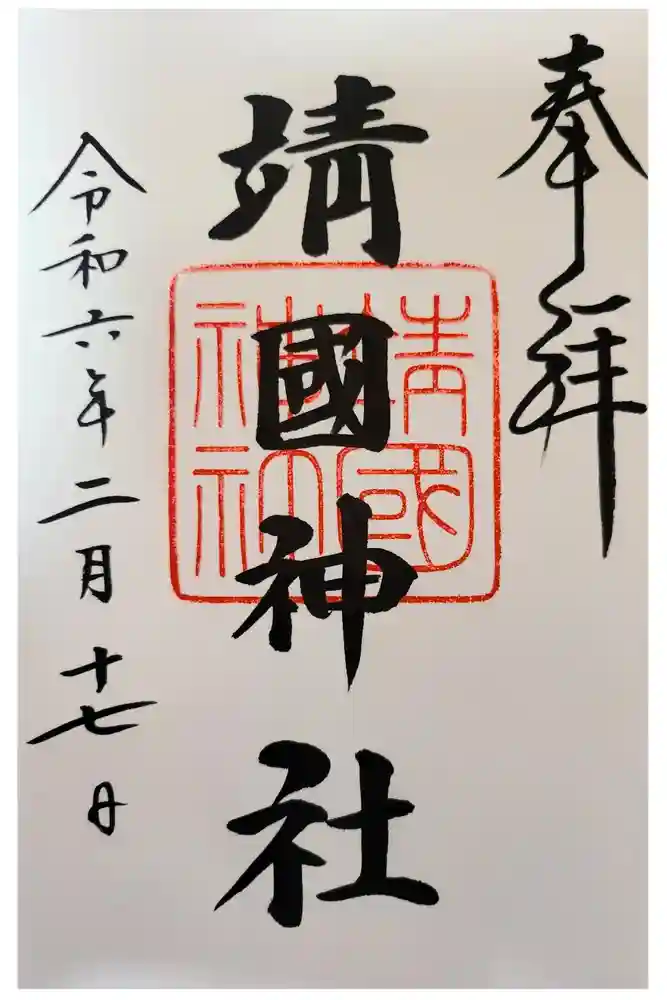 奉拝
靖國神社
靖國
神社
令和六年二月十七日